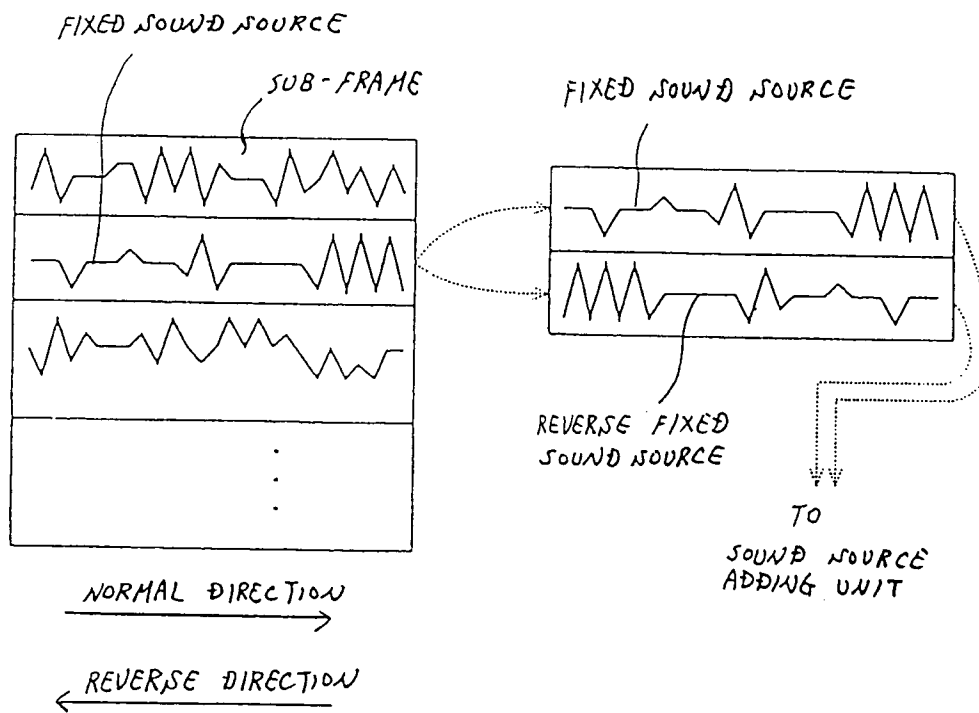 FIXED SOUND SOURCE
SUB-FRAME
FIXED SOUND SOURCE
REVERSE FIXED
SOUND SOURCE
TO
SOUND SOURCE
ADDING UNIT
NORMAL DIRECTION
REVERSE DIRECTION